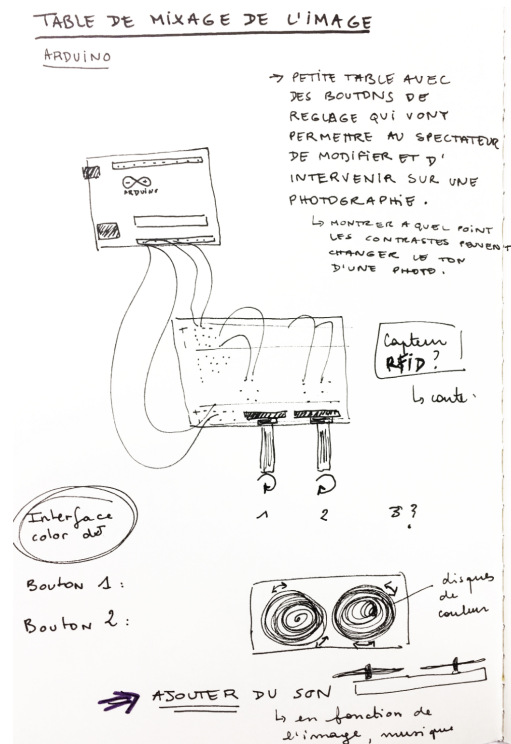 TABLE DE MIXAGE DE L'IMAGE
ARDUINO
→ PETITE TABLE AVEC
DES BOUTONS DE
REGLAGE QUI VONT
PERMETTRE AU SPECTATEUR
DE MODIFIER ET D'
INTERVENIR SUR UNE
PHOTOGRAPHIE.
↳ MONTRER A QUEL POINT
LES CONTRASTES PEUVENT
CHANGER LE TON
D'UNE PHOTO.
ARDUINO
Capteur
RFID ?
↳ carte.
1 2 3 ?
Interface
color
BOUTON 1 :
BOUTON 2 :
disques
de
couleur
→ AJOUTER DU SON
↳ en fonction de
l'image, musique